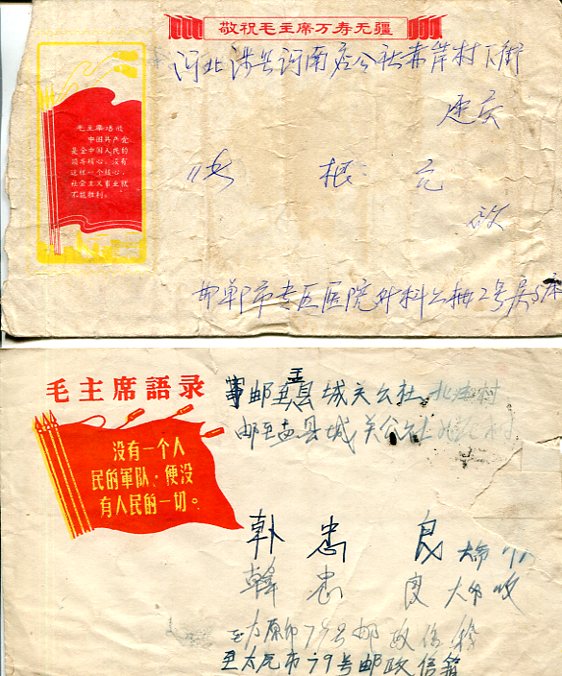 敬祝毛主席万寿无疆
河北涉县河南店公社赤岸村下街
毛主席语录
中国共产党
是全中国人民的
领导核心。没有
这样一个核心，
社会主义事业就
不能胜利。
张 根 元
启
邯郸市专区医院外科
毛主席語录
没有一个人
民的軍队，便没
有人民的一切。
邮至孟县城关公社
邮至孟县城关公社
韩 忠 良 大爷
韓 忠 良 大爷 收
太原市79号邮政信箱
至太原市79号邮政信箱